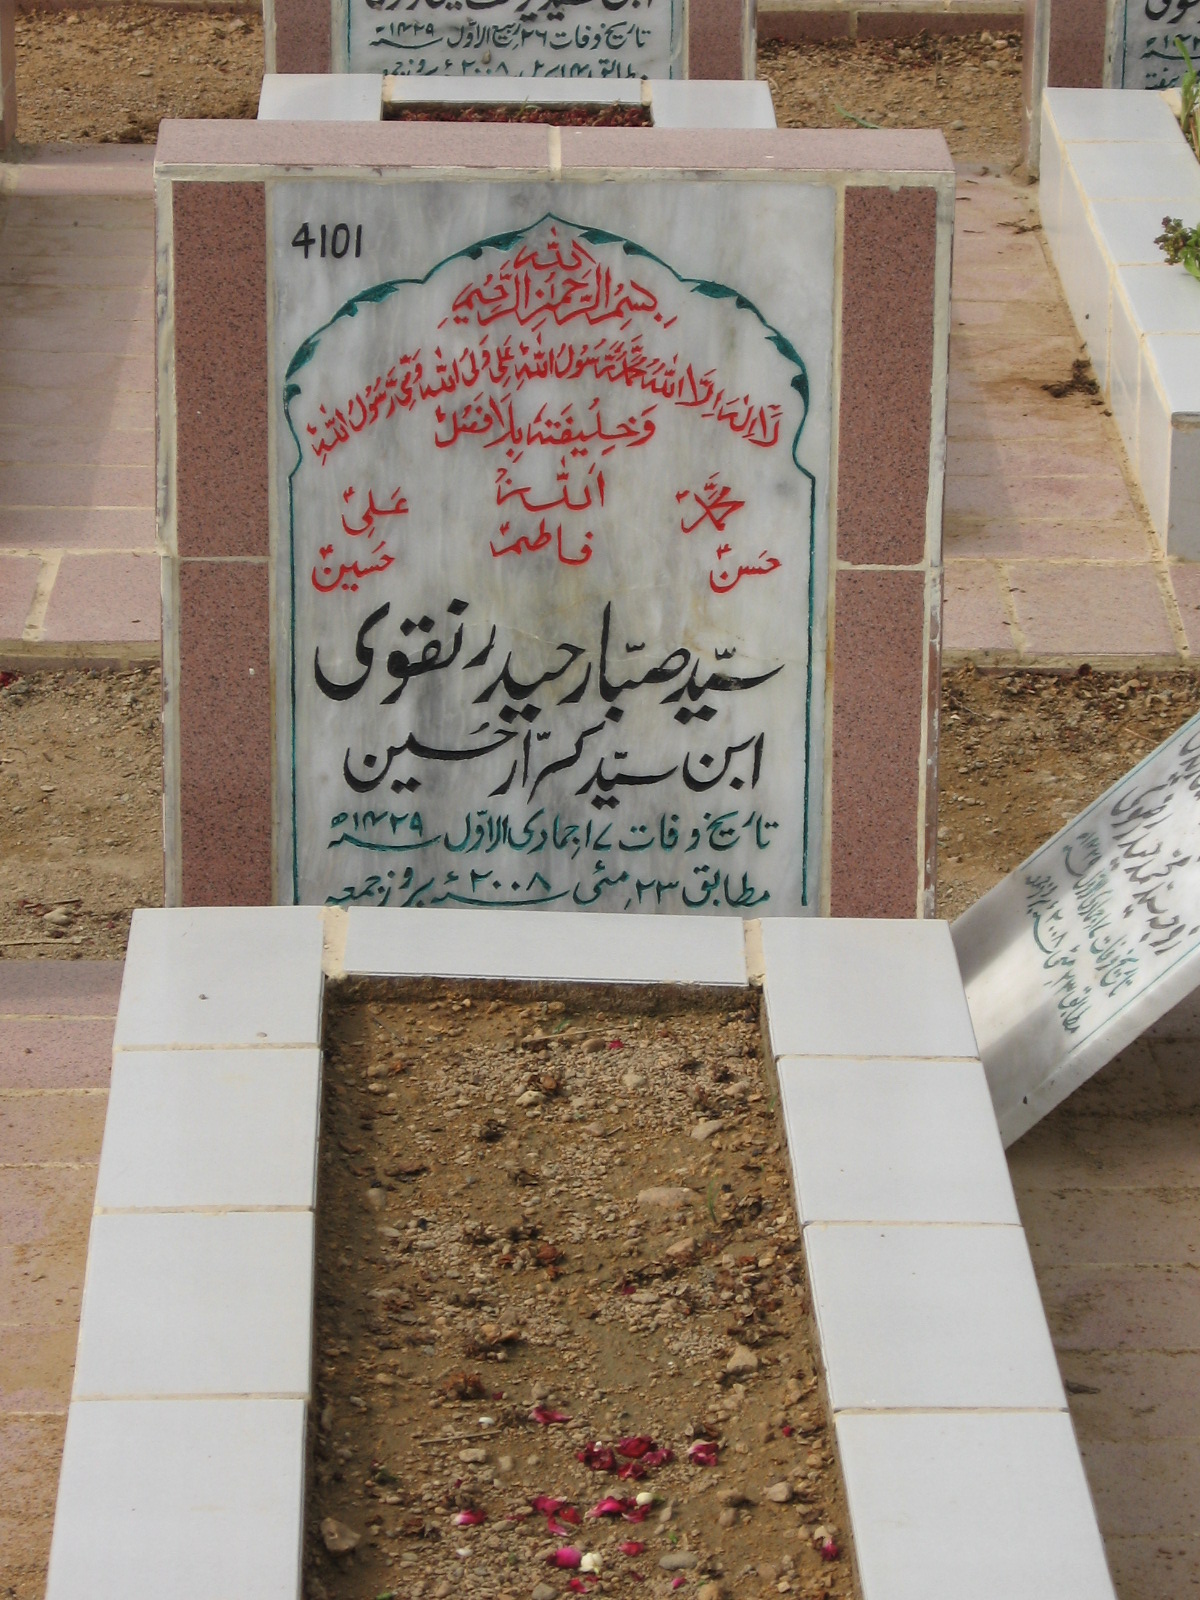 تاریخ وفات ۲۶ ربیع الاوّل ۱۴۲۹ھ
4101
بِسْمِ اللّٰهِ الرَّحْمٰنِ الرَّحِیْمِ
لَآ اِلٰهَ اِلَّا اللّٰهُ مُحَمَّدٌ رَّسُوْلُ اللّٰهِ عَلِیٌّ وَلِیُّ اللّٰهِ وَصِیُّ رَسُوْلُ اللّٰهِ
وَخَلِیْفَتُهٗ بِلَا فَصْلٌ
مُحَمَّدؐ اَللّٰهُ عَلِیؑ
حَسنؑ فاطمہؑ حُسینؑ
سیّد صبّار حیدر نقوی
ابن سیّد کرّار حُسین
تاریخ وفات ۱۷ جمادی الاوّل ۱۴۲۹ھ
مطابق ۲۳ مئی ۲۰۰۸ء بروز جمعہ